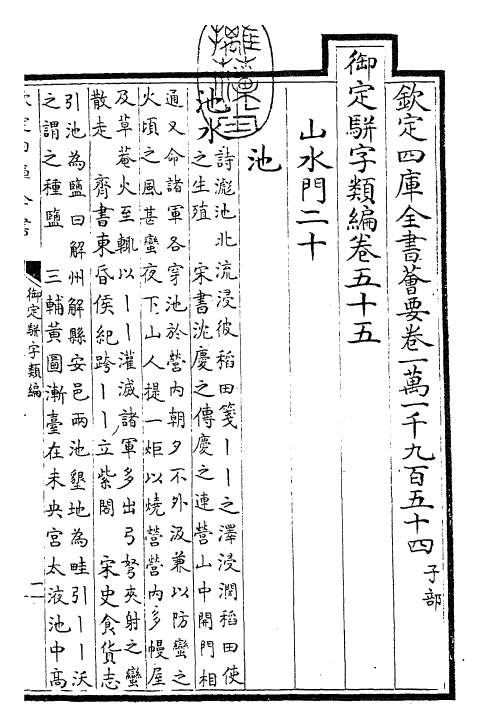 欽定四庫全書薈要卷一萬一千九百五十四 子部
御定駢字類編卷五十五
山水門二十
池
池水
詩滮池北流浸彼稻田箋〡〡之澤浸潤稻田使
之生殖 宋書沈慶之傳慶之連營山中開門相
通又命諸軍各穿池於營内朝夕不外汲兼以防蠻之
火頃之風甚蠻夜下山人提一炬以燒營營内多幔屋
及草菴火至輒以〡〡灌滅諸軍多出弓弩夾射之蠻
散走 齊書東昏侯紀跨〡〡立紫閣 宋史食貨志
引池為鹽曰解州解縣安邑兩池墾地為畦引〡〡沃
之謂之種鹽 三輔黃圖漸臺在未央宮太液池中高
御定駢字類編